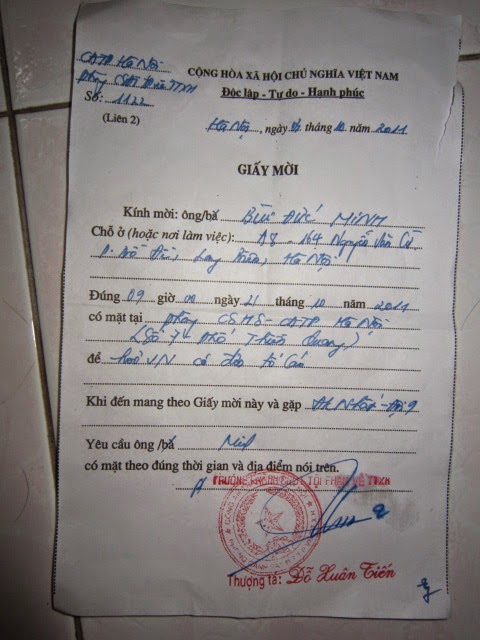 CATP Hà Nội
Phòng CSĐT
Số: 1122
(Liên 2)
CỘNG HÒA XÃ HỘI CHỦ NGHĨA VIỆT NAM
Độc lập - Tự do - Hạnh phúc
Hà Nội, ngày tháng 10 năm 2011
GIẤY MỜI
Kính mời: ông/bà BÙI ĐỨC MINH
Chỗ ở (hoặc nơi làm việc): A8 - 164 Nguyễn Văn Cừ
P. Bồ Đề, Long Biên, Hà Nội
Đúng 09 giờ 00 ngày 21 tháng 10 năm 2011
có mặt tại phòng CSHS - CATP Hà Nội
(Số 7 - phố Thiền Quang)
để hỏi VN có đơn tố cáo
Khi đến mang theo Giấy mời này và gặp Đội 9
Yêu cầu ông /bà Minh
có mặt theo đúng thời gian và địa điểm nói trên.
Thượng tá: Đỗ Xuân Tiến